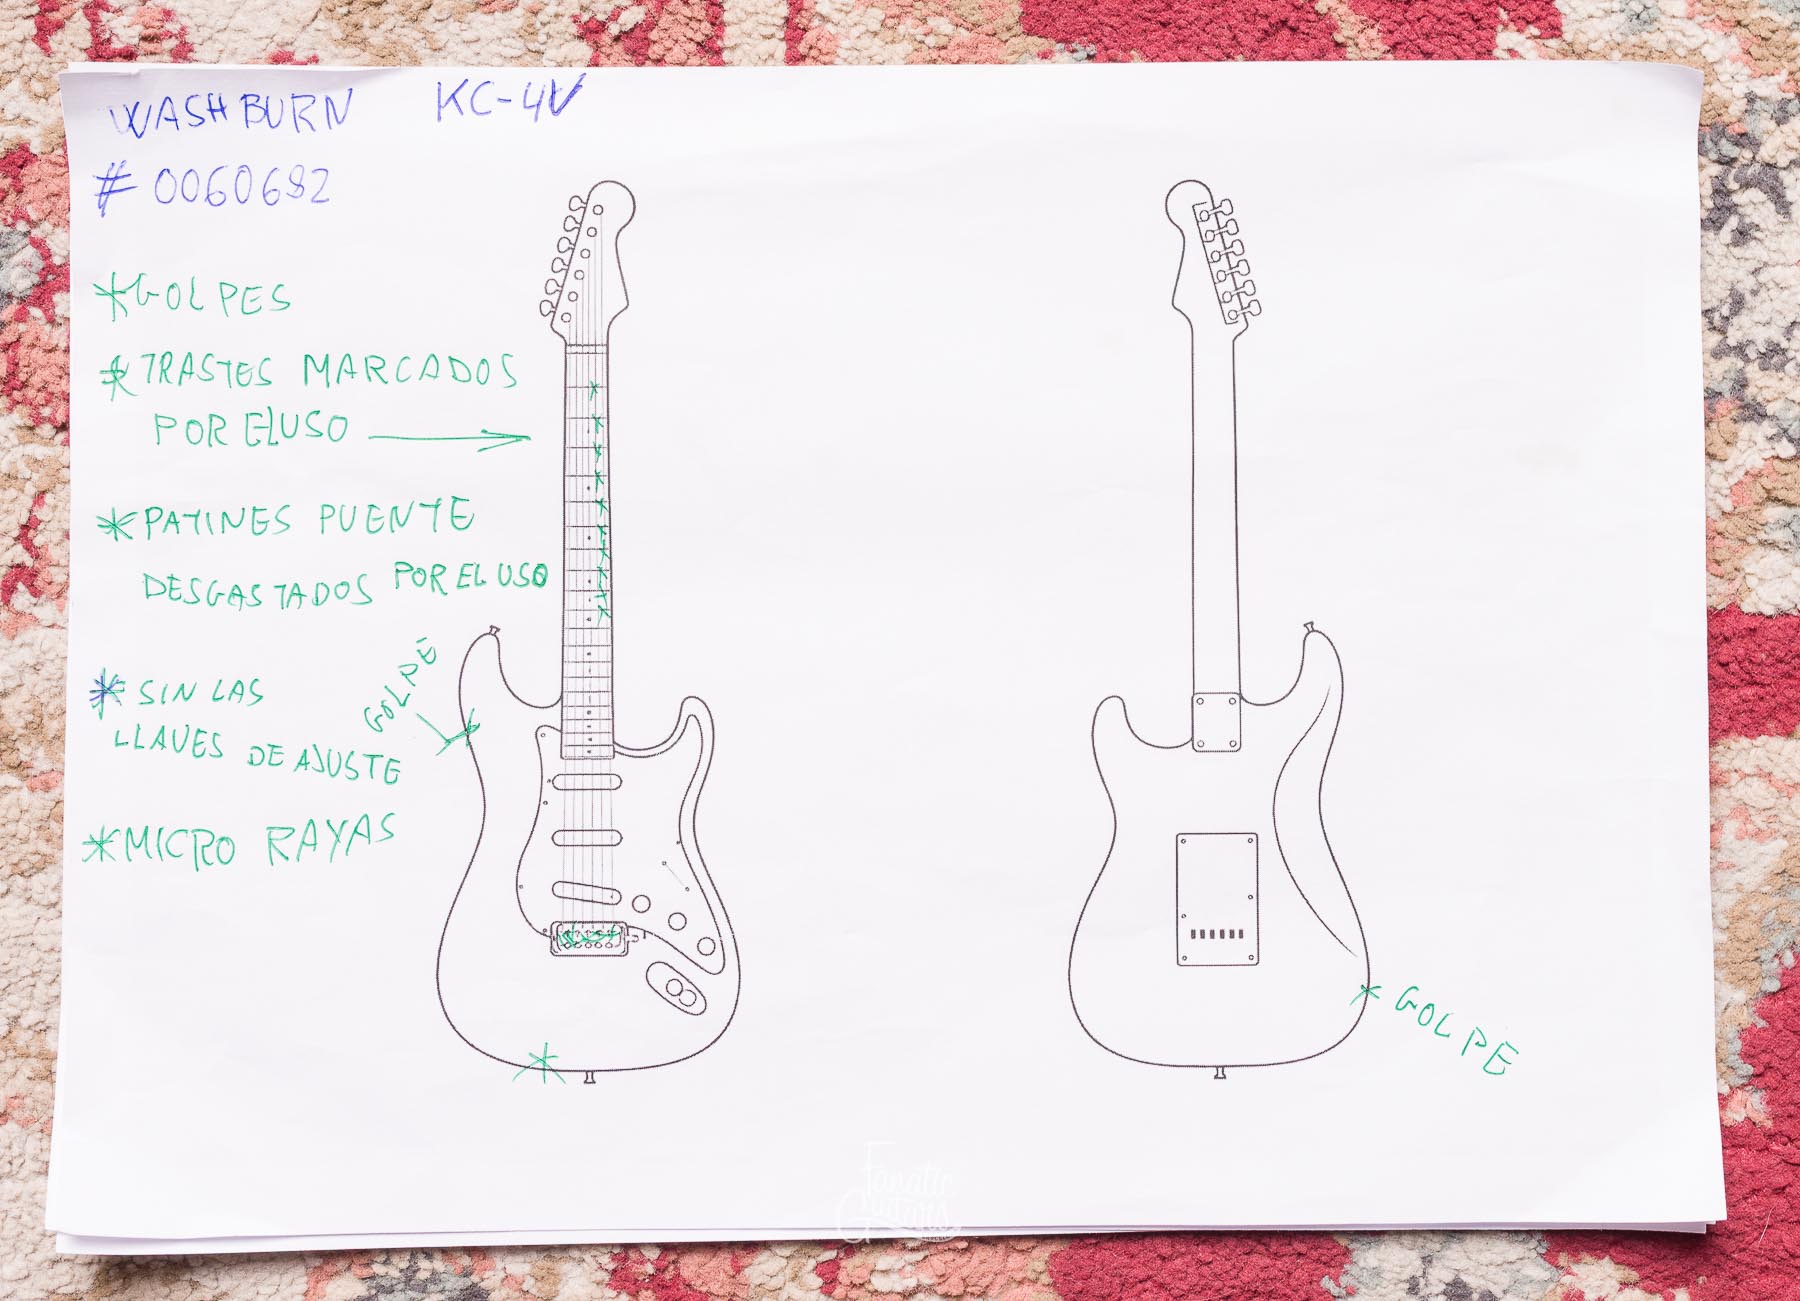 WASHBURN KC-4V
# 0060682
* GOLPES
* TRASTES MARCADOS
POR EL USO
* PATINES PUENTE
DESGASTADOS POR EL USO
GOLPE
* SIN LAS
LLAVES DE AJUSTE
* MICRO RAYAS
GOLPE
Fanatic
Guitars